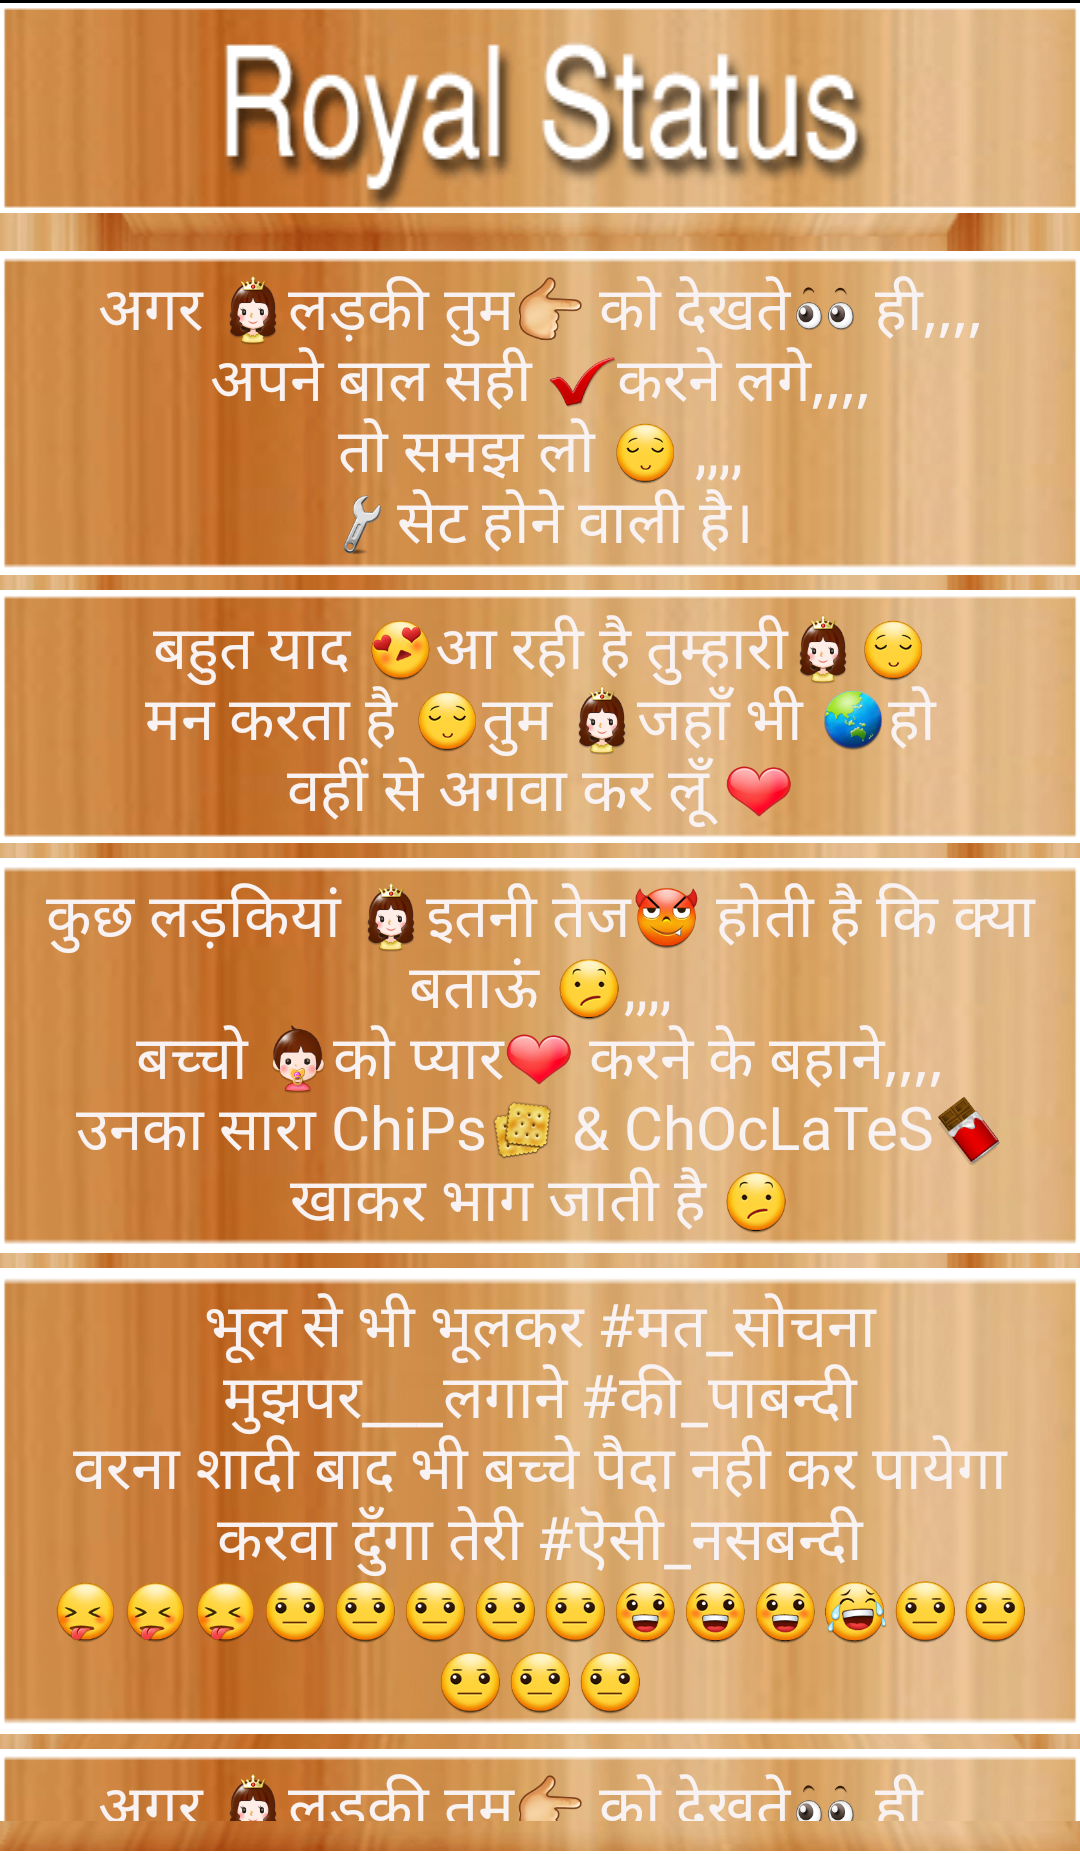 Royal Status
अगर 👸लड़की तुम👉 को देखते👀 ही,,,,
अपने बाल सही ✔करने लगे,,,,
तो समझ लो 😌 ,,,,
🔧 सेट होने वाली है।
बहुत याद 😍आ रही है तुम्हारी👸😌
मन करता है 😌तुम 👸जहाँ भी 🌏हो
वहीं से अगवा कर लूँ ❤
कुछ लड़कियां 👸इतनी तेज😈 होती है कि क्या
बताऊं 😕,,,,
बच्चो 👶को प्यार❤ करने के बहाने,,,,
उनका सारा ChiPs🍪 & ChOcLaTeS🍫
खाकर भाग जाती है 😕
भूल से भी भूलकर #मत_सोचना
मुझपर___लगाने #की_पाबन्दी
वरना शादी बाद भी बच्चे पैदा नही कर पायेगा
करवा दुँगा तेरी #ऎसी_नसबन्दी
😝😝😝😐😐😐😐😐😀😀😀😂😐😐
😐😐😐
अगर 👸लड़की तुम👉 को देखते👀 ही